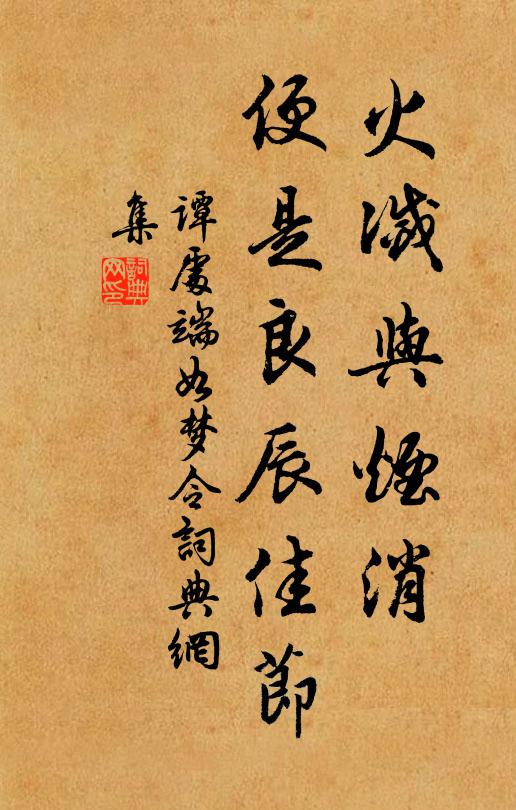 火滅與煙消
便是良辰佳節
譚處端如梦令詞典網
集
詞典
网印